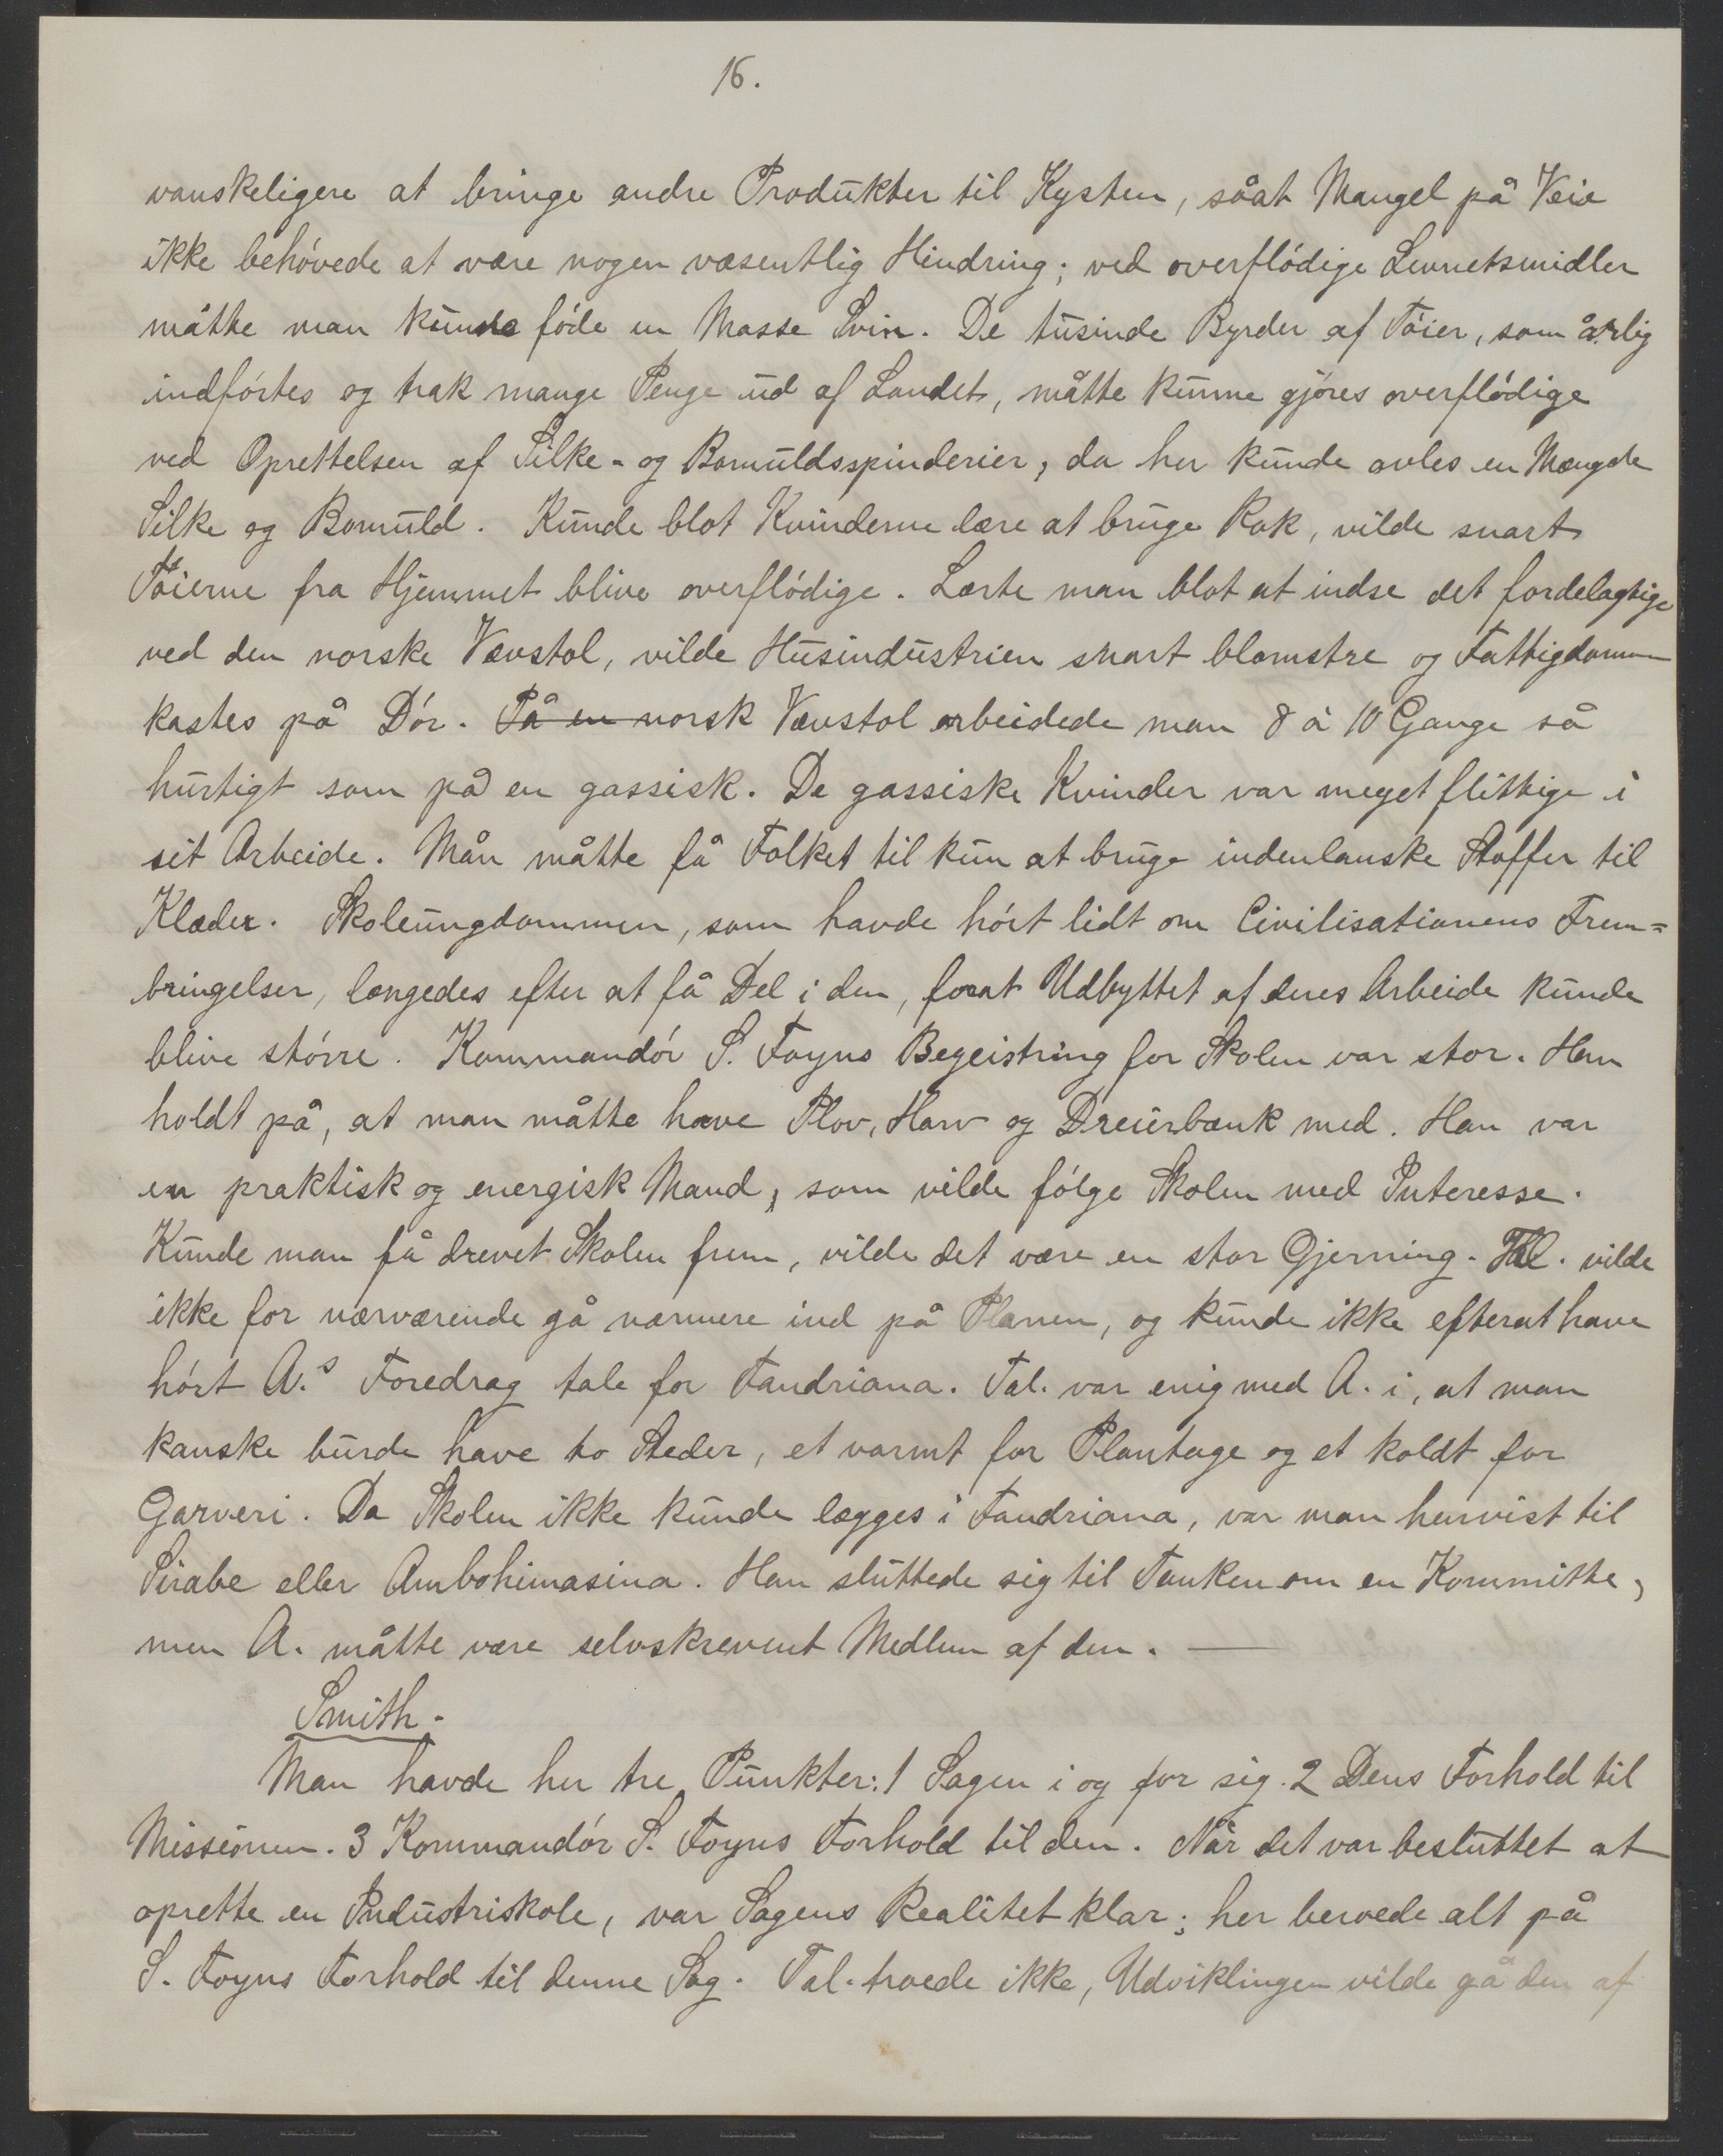 16.
vanskeligere at bringe andre Produkter til Kysten, såat Mangel på Veie
ikke behóvede at være nogen væsentlig Hindring; ved overflódige Levnetsmidler
måtte man kunde fóde en Masse Svin. De tusinde Byrder af Tóier, som årlig
indfórtes og trak mange Penge ud af Landet, måtte kunne gjóres overflódige
ved Oprettelsen af Silke- og Bomuldsspinderier, da her kunde avles en Mængde
Silke og Bomuld. Kunde blot Kvinderne lære at bruge Rok, vilde snart
Tóierne fra Hjemmet blive overflódige. Lærte man blot at indse det fordelagtige
ved den norske Vævstol, vilde Husindustrien snart blomstre og Fattigdommen
kastes på Dór. På en norsk Vævstol arbeidede man 8 à 10 Gange så
hurtigt som på en gassisk. De gassiske Kvinder var meget flittige i
sit Arbeide. Mån måtte få Folket til kun at bruge indenlanske Stoffer til
Klæder. Skoleungdommen, som havde hórt lidt om Civilisationens Frem=
bringelser, længedes efter at få Del i den, forat Udbyttet af deres Arbeide kunde
blive stórre. Kommandór S. Foyns Begeistring for Skolen var stor. Han
holdt på, at man måtte have Plov, Harv og Dreierbænk med. Han var
en praktisk og energisk Mand, som vilde fólge Skolen med Interesse.
Kunde man få drevet Skolen frem, vilde det være en stor Gjerning. Tal. vilde
ikke for nærværende gå nærmere ind på Planen, og kunde ikke efterat have
hórt A.s Foredrag tale for Fandriana. Tal. var enig med A. i, at man
kanske burde have to Steder, et varmt for Plantage og et koldt for
Garveri. Da Skolen ikke kunde lægges i Fandriana, var man henvist til
Sirabe eller Ambohimasina. Han sluttede sig til Tanken om en Kommitte,
men A. måtte være selvskrevent Medlem af den. —
Smith.
Man havde her tre Punkter: 1 Sagen i og for sig. 2 Dens Forhold til
Missionen. 3 Kommandór S. Foyns Forhold til den. Når det var besluttet at
oprette en Industriskole, var Sagens Realitet klar; her beroede alt på
S. Foyns Forhold til denne Sag. Tal. troede ikke, Udviklingen vilde gå den af